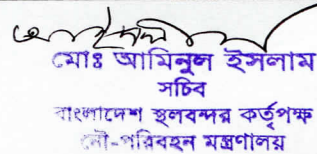 মোঃ আমিনুল ইসলাম
সচিব
বাংলাদেশ স্থলবন্দর কর্তৃপক্ষ
নৌ-পরিবহন মন্ত্রণালয়